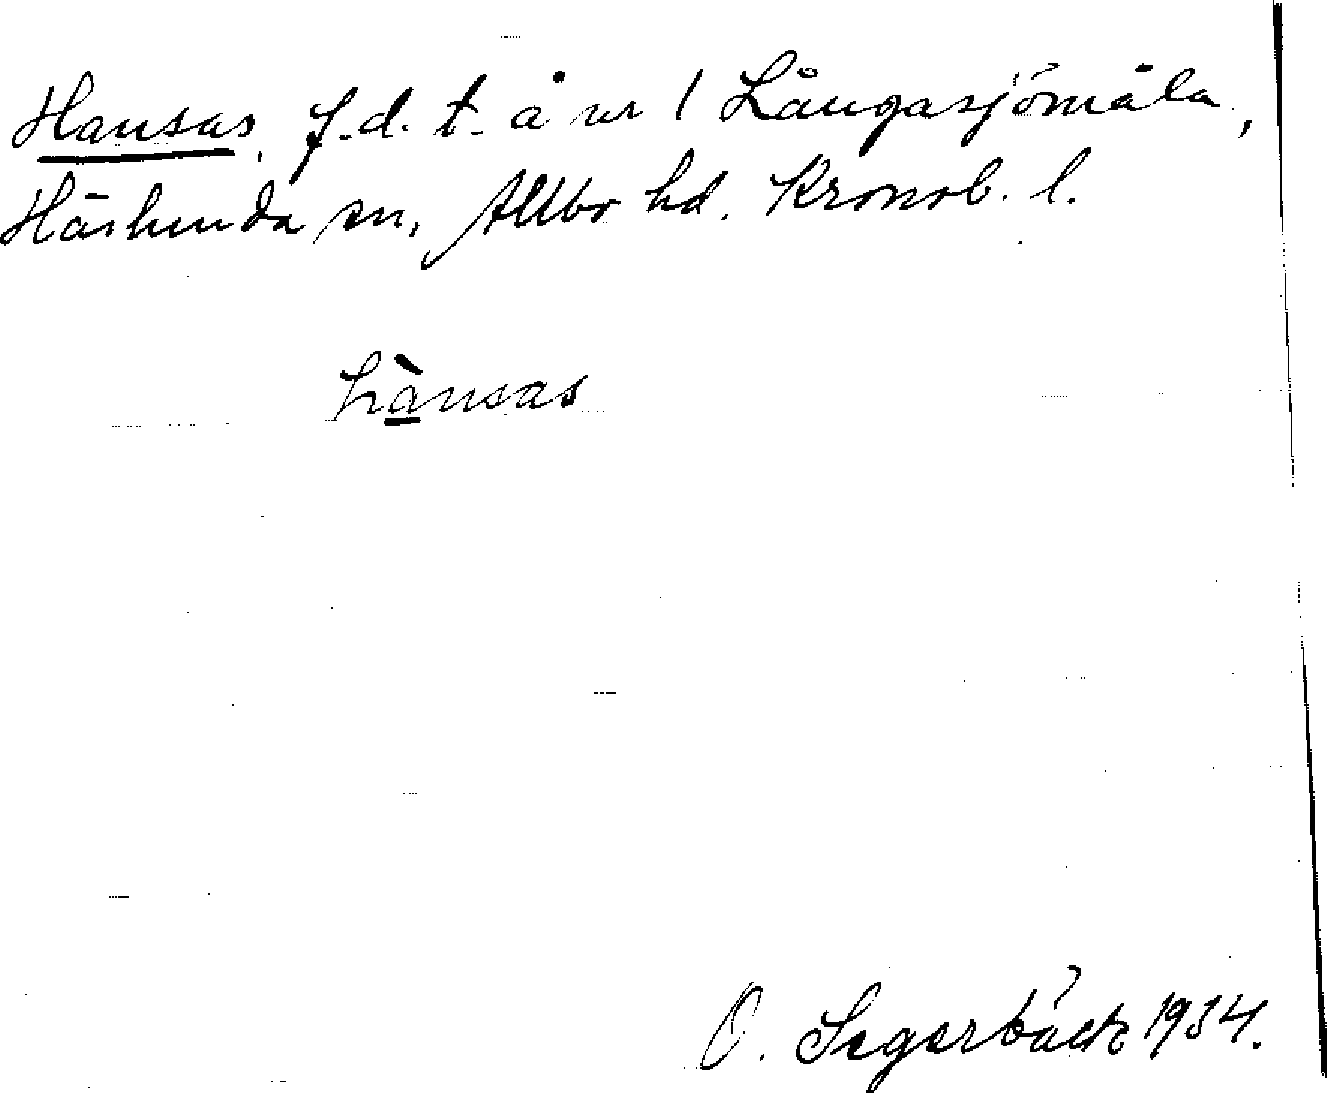 Hansas, f.d. t. å nr 1 Långasjömåla,
Härlunda sn, Allbo hd. Kronob. l.
hànsas
O. Segerbäck 1934.